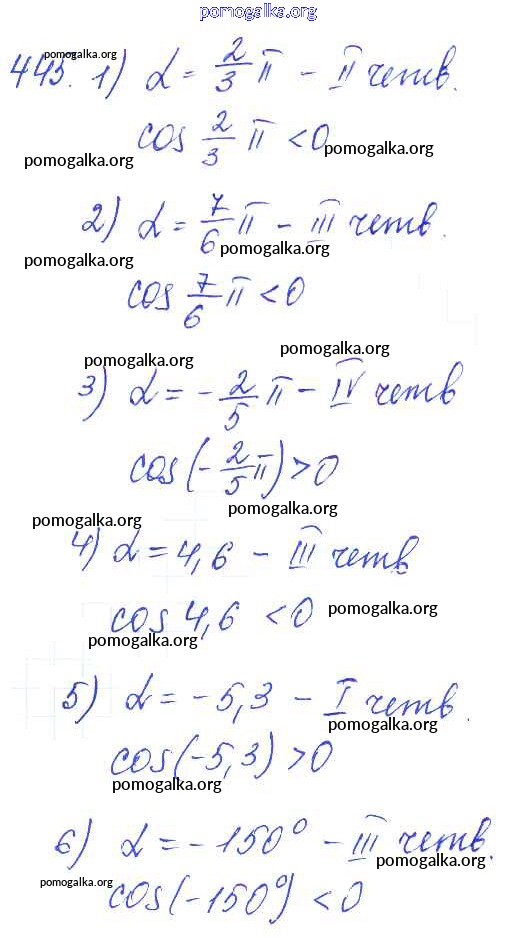 pomogalka.org
pomogalka.org
443. 1) α = 2/3 π – II четв.
cos 2/3 π < 0 pomogalka.org
pomogalka.org
2) α = 7/6 π – III четв.
pomogalka.org
pomogalka.org
cos 7/6 π < 0
pomogalka.org
pomogalka.org
3) α = – 2/5 π – IV четв
cos(– 2/5 π) > 0
pomogalka.org
pomogalka.org
4) α = 4,6 – III четв
cos 4,6 < 0 pomogalka.org
pomogalka.org
5) α = – 5,3 – I четв.
pomogalka.org
cos(–5,3) > 0
pomogalka.org
6) α = – 150° – III четв.
pomogalka.org
pomogalka.org
cos(–150°) < 0